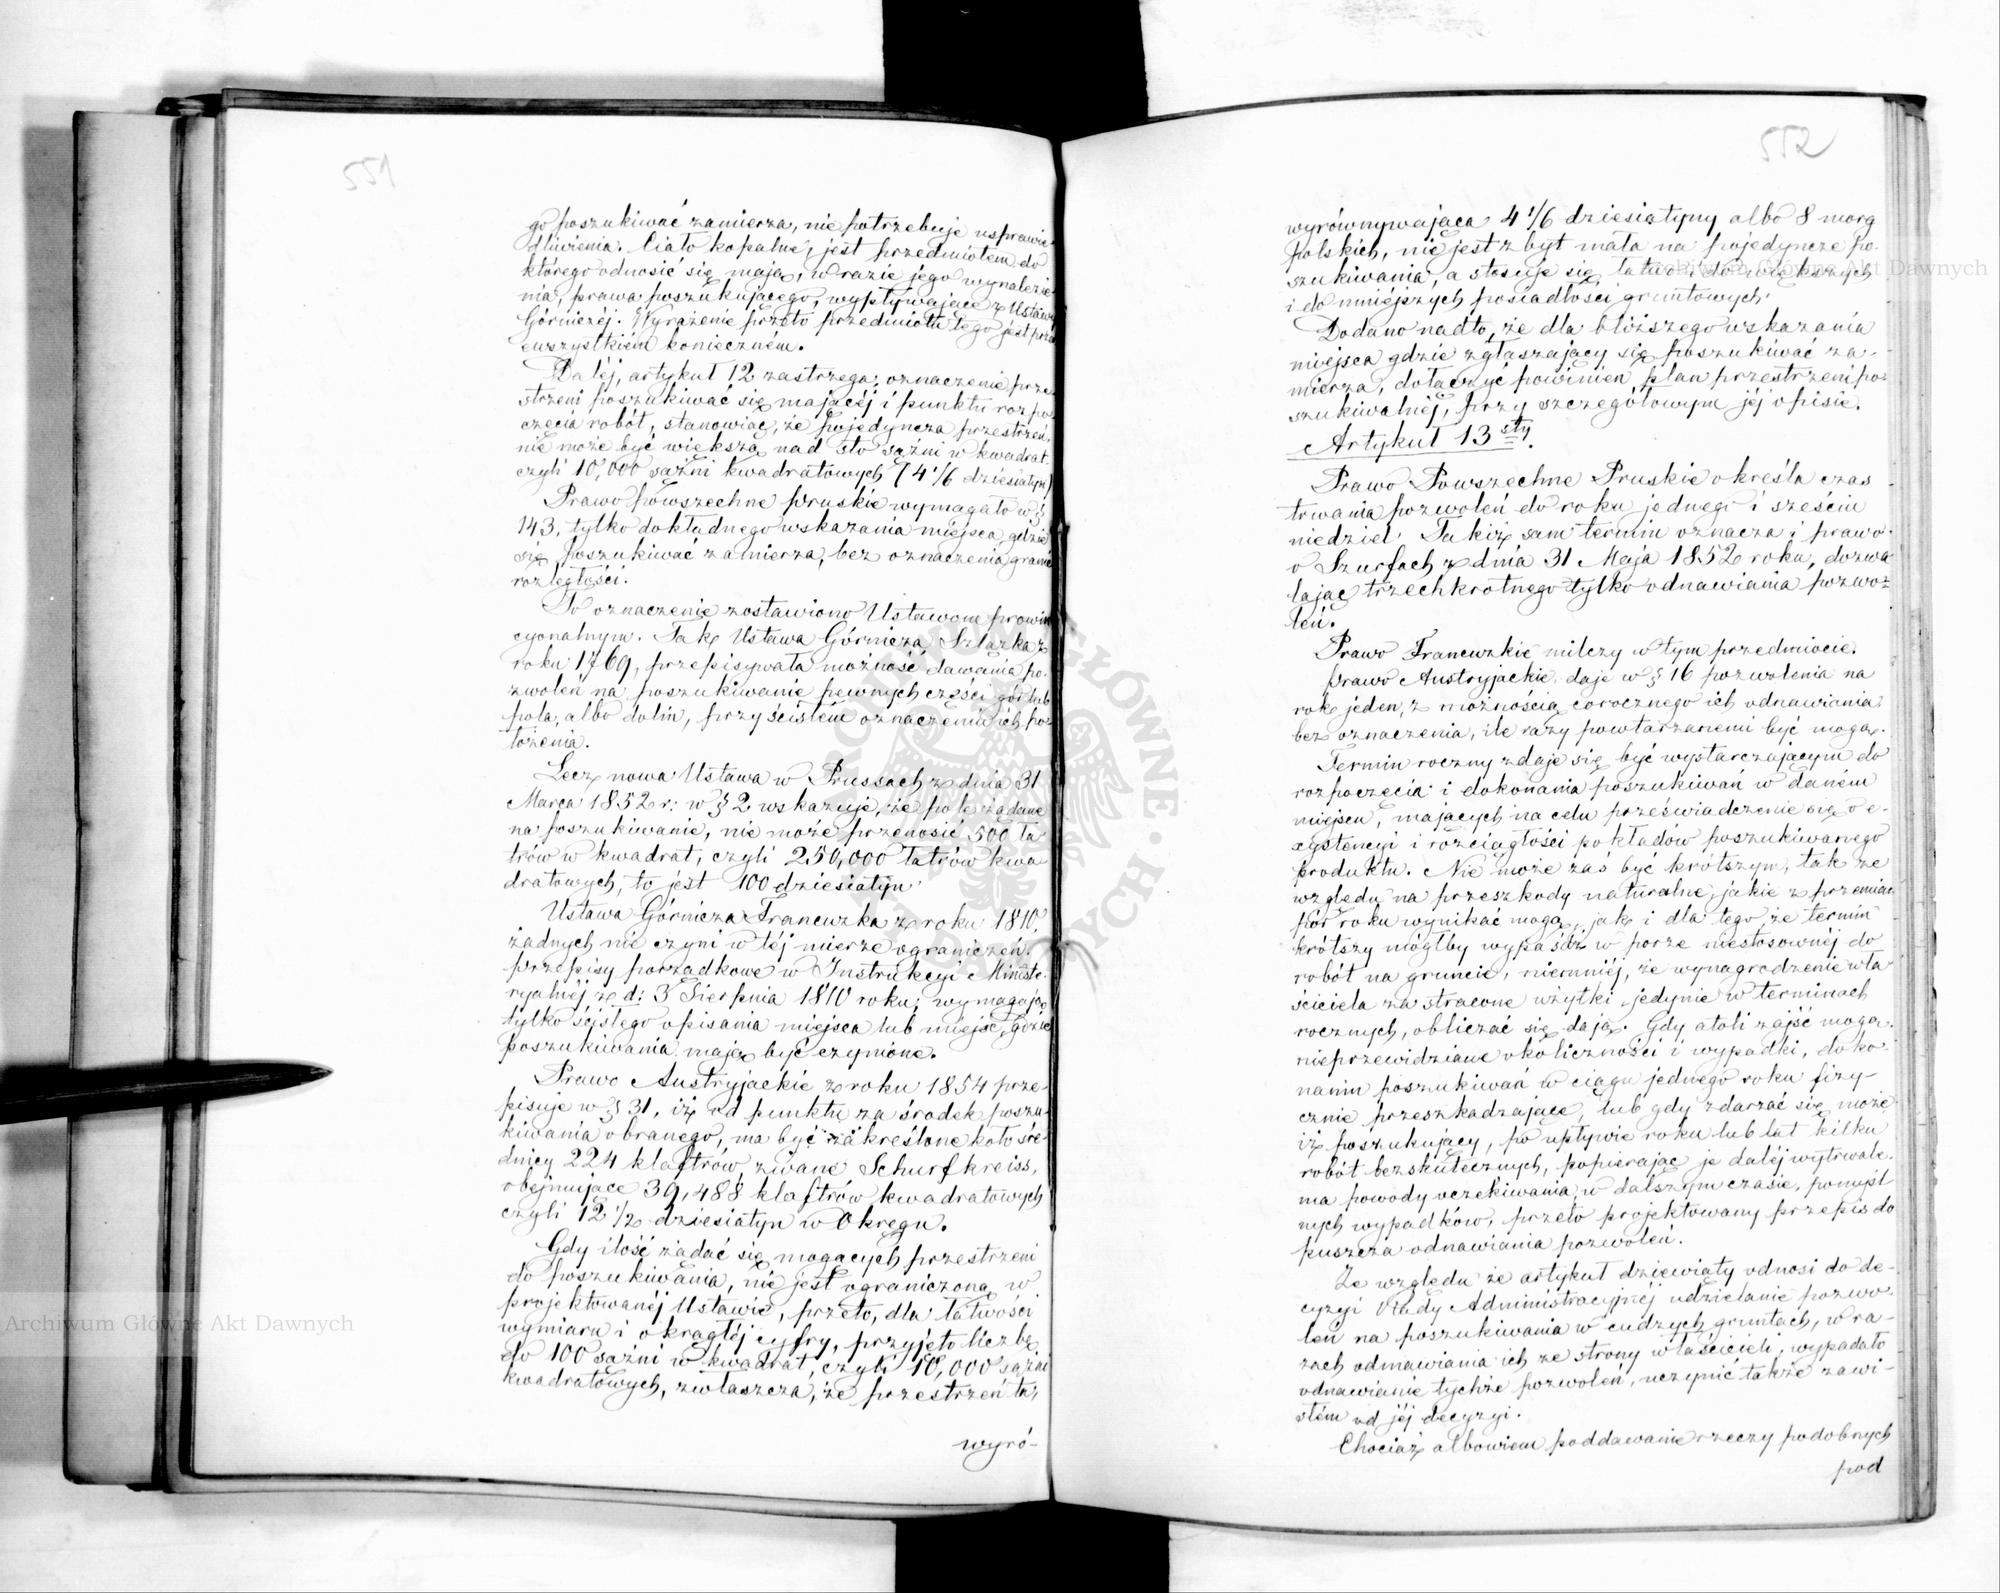 551
go poszukiwać zamierza, nie potrzebuje usprawie
dliwienia. Ciało kopalne, jest przedmiotem do
którego odnosić się mają, w razie jego wynalezie
nia, prawa poszukującego, wypływające z Ustawy
Górniczéj. Wyrażenie przeto przedmiotu tego jest prze
ewszystkiém konieczném.
Daléj, artykuł 12 zastrzega oznaczenie prze
strzeni poszukiwać się mającéj i punktu rozpo
częcia robót, stanowiąc, że pojedyncza przestrzeń,
nie może być większą nad sto sążni w kwadrat
czyli 10,000 sążni kwadratowych (4 1/6 dziesiatyn)
Prawo powszechne pruskie wymagało w §
143, tylko dokładnego wskazania miejsca, gdzie
się poszukiwać zamierza, bez oznaczenia granic
rozległości.
To oznaczenie zostawiono Ustawom prowin
cyonalnym. Tak Ustawa Górnicza Szlązka z
roku 1769, przepisywała możność dawania po
zwoleń na poszukiwanie pewnych części gór lub
pola, albo dolin, przy ścisłém oznaczeniu ich po
łożenia.
Lecz nowa Ustawa w Prussach z dnia 31
Marca 1852 r: w § 2 wskazuje, że pole żądane
na poszukiwanie, nie może przenosić 500 ła
trów w kwadrat, czyli 250,000 łatrów kwa
dratowych, to jest 100 dziesiatyn.
Ustawa Górnicza Francuzka z roku 1810,
żadnych nie czyni w téj mierze ograniczeń.
Przepisy porządkowe w Instrukcyi Ministe
ryalnéj z d: 3 Sierpnia 1810 roku, wymagają
tylko ścisłego opisania miejsca lub miejsc, gdzie
poszukiwania mają być czynione.
Prawo Austryjackie z roku 1854 prze-
pisuje w § 31, iż od punktu za środek poszu-
kiwania obranego, ma być zakreślone koło śre-
dnicy 224 klaftrów, zwane Schurfkreiss,
obejmujące 39,488 klaftrów kwadratowych
czyli 12 1/2 dziesiatyn w Okręgu.
Gdy ilość żądać się mogących przestrzeni
do poszukiwania, nie jest ograniczoną w
projektowanéj Ustawie, przeto, dla łatwości
wymiaru i okrągłéj cyfry, przyjęto liczbę
do 100 sążni w kwadrat, czyli 10,000 sążni
kwadratowych, zwłaszcza, że przestrzeń ta,
wyró-
552
wyrównywająca 4 1/6 dziesiatyny albo 8 morg
Polskich, nie jest zbyt mała na pojedyncze po-
szukiwania, a stosuje się łatwo i do większych
i do mniejszych posiadłości gruntowych.
Dodano nadto, że dla bliższego wskazania
miejsca gdzie zgłaszający się poszukiwać za-
mierza, dołączyć powinien plan przestrzeni po-
szukiwalnéj, przy szczegółowym jej opisie.
Artykuł 13sty.
Prawo Powszechne Pruskie określa czas
trwania pozwoleń do roku jednego i sześciu
niedziel. Takiż sam termin oznacza i prawo
o Szurfach z dnia 31 Maja 1852 roku, dozwa
lając trzechkrotnego tylko odnawiania pozwo-
leń.
Prawo Francuzkie milczy w tym przedmiocie.
Prawo Austryjackie daje w § 16 pozwolenia na
rok jeden, z możnością corocznego ich odnawiania
bez oznaczenia, ile razy powtarzanemi być mogą.
Termin roczny zdaje się być wystarczającym do
rozpoczęcia i dokonania poszukiwań w daném
miejscu, mających na celu przeświadczenie się o e-
xystencyi i rozciągłości pokładów poszukiwanego
produktu. Nie może zaś być krótszym, tak ze
względu na przeszkody naturalne, jakie z przemian
pór roku wynikać mogą, jak i dla tego, że termin
krótszy mógłby wypaśdź w porze niestosownéj do
robót na gruncie, niemniéj, że wynagrodzenie wła
ściciela za stracone użytki jedynie w terminach
rocznych, obliczać się dają. Gdy atoli zajść mogą
nieprzewidziane okoliczności i wypadki, doko-
naniu poszukiwań w ciągu jednego roku fizy-
cznie przeszkadzające, lub gdy zdarzać się może
iż poszukujący, po upływie roku lub lat kilku
robót bezskutecznych, popierając je daléj wytrwale,
ma powody oczekiwania w dalszym czasie, pomyśl
nych wypadków, przeto projektowany przepis do
puszcza odnawiania pozwoleń.
Ze względu że artykuł dziewiąty odnosi do de-
cyzyi Władzy Administracyjnéj udzielanie pozwo-
leń na poszukiwania w cudzych gruntach, w ra-
zach odmawiania ich ze strony właścicieli, wypadało
odnawianie tychże pozwoleń, uczynić także zawi-
słém od jéj decyzyi.
Chociaż albowiem poddawanie rzeczy podobnych
pod
Archiwum Główne Akt Dawnych
Archiwum Główne Akt Dawnych